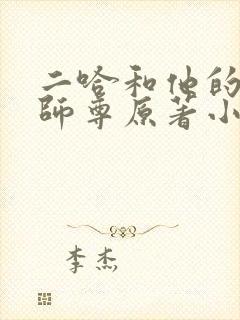 二哈和他的
師尊原著小
李杰